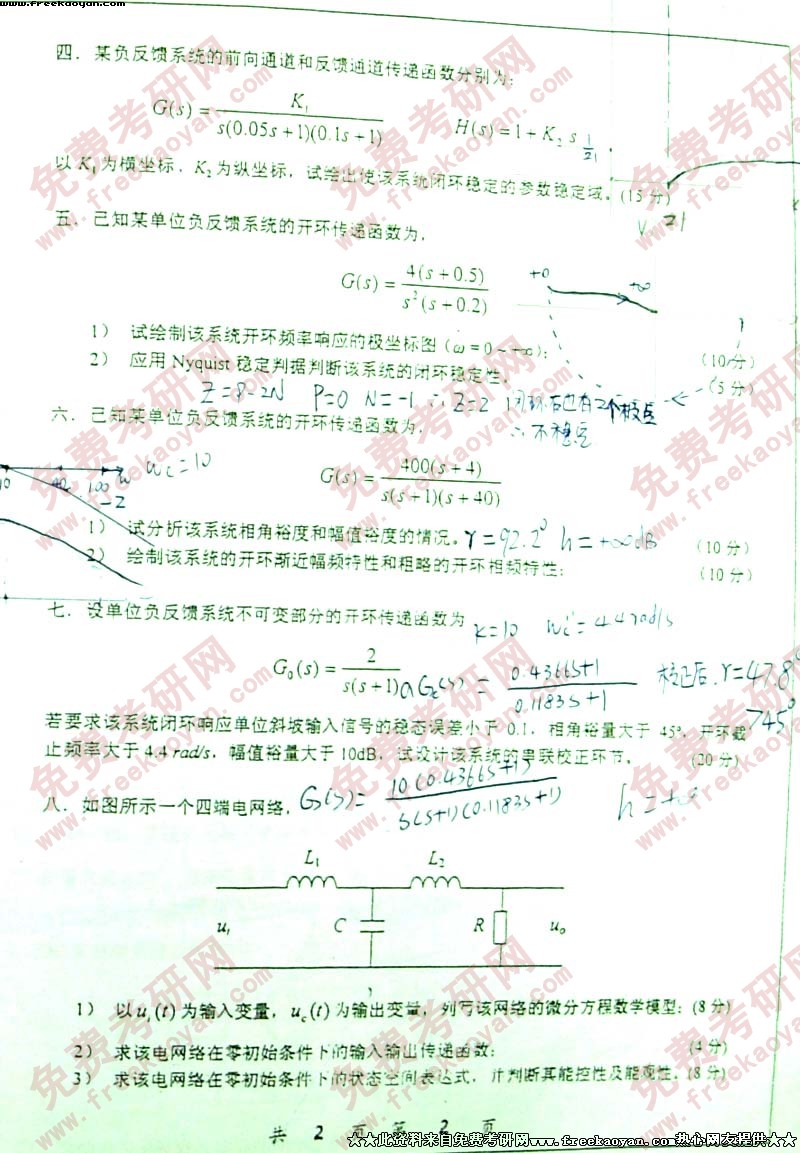 www.freekaoyan.com
四．某负反馈系统的前向通道和反馈通道传递函数分别为：
G(s) = K₁ / s(0.05s+1)(0.1s+1) H(s) = 1 + K₂ s
以 K₁ 为横坐标，K₂ 为纵坐标，试绘出使该系统闭环稳定的参数稳定域。(15 分)
五．己知某单位负反馈系统的开环传递函数为，
G(s) = 4(s+0.5) / s²(s+0.2)
+0 +∞
1） 试绘制该系统开环频率响应的极坐标图（ω = 0 ~ +∞）； (10 分)
2） 应用 Nyquist 稳定判据判断该系统的闭环稳定性。 (5 分)
Z=8-2N P=0 N=-1 ∴Z=2 闭环右边有2个极点
∴不稳定
六．己知某单位负反馈系统的开环传递函数为，
Wc=10
G(s) = 400(s+4) / s(s+1)(s+40)
10 40 100 W
-2
1） 试分析该系统相角裕度和幅值裕度的情况。 (10 分)
r=92.2° h=+∞dB
2） 绘制该系统的开环渐近幅频特性和粗略的开环相频特性； (10 分)
七．设单位负反馈系统不可变部分的开环传递函数为
K=10 Wc'=4.4rad/s
G₀(s) = 2 / s(s+1)
aGc(s) = 0.4366s+1 / 0.1183s+1 校正后，r=47.8° >45°
若要求该系统闭环响应单位斜坡输入信号的稳态误差小于 0.1，相角裕量大于 45°，开环截
止频率大于 4.4 rad/s，幅值裕量大于 10dB，试设计该系统的串联校正环节。 (20 分)
八．如图所示一个四端电网络，
G(s)= 10(0.4366s+1) / s(s+1)(0.1183s+1) h=+∞
L₁ L₂
uᵢ C R uₒ
1） 以 uᵣ(t) 为输入变量，u꜀(t) 为输出变量，列写该网络的微分方程数学模型；(8 分)
2） 求该电网络在零初始条件下的输入输出传递函数； (4 分)
3） 求该电网络在零初始条件下的状态空间表达式，并判断其能控性及能观性。(8 分)
共 2 页 第 2 页
★★此资料来自免费考研网www.freekaoyan.com热心网友提供★★
免费考研网
www.freekaoyan.com